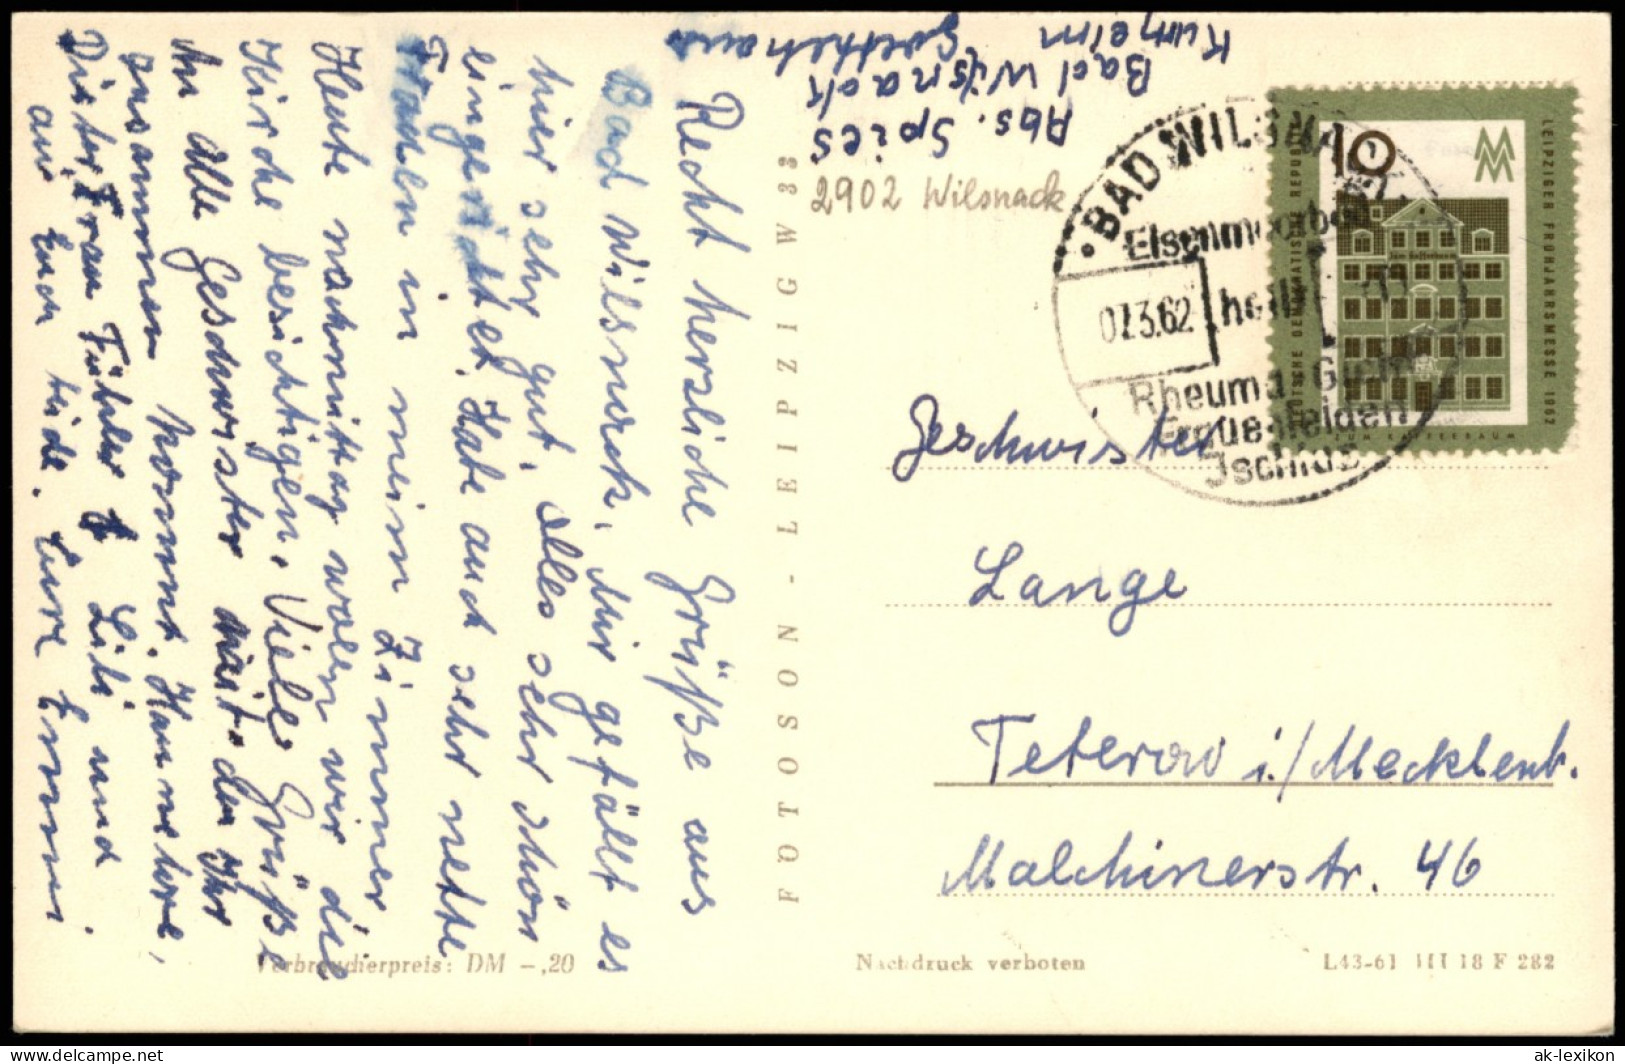 Abs. Spies
Bad Wilsnack
Kurheim
Goethehaus
2902 Wilsnack
Recht herzliche Grüße aus
Bad Wilsnack. Mir gefällt es
hier sehr gut. Alles sehr schön
eingerichtet. Habe auch sehr nette
Frauen in meim Zimmer
Heute nachmittag wollen wir die
Kirche besichtigen. Viele Grüße
An alle Geschwister mit den Ihr
zusammen kommt. Hannelore,
Dieter, Frau Fühler Lili und
auf Euch beide. Eure Emmi
FOTOSON - LEIPZIG W 33
Verbraucherpreis: DM -,20
Nachdruck verboten
L43-61 III 18 F 282
BAD WILSNACK
Eisenmoorbad
07.3.62
heilt
Rheuma, Gicht
Frauenleiden
Ischias
10
MM
DEUTSCHE DEMOKRATISCHE REPUBLIK
LEIPZIGER FRÜHJAHRSMESSE 1962
ZUM KAFFEEBAUM
Geschwister
Lange
Teterow i./Mecklenb.
Malchinerstr. 46
ak-lexikon